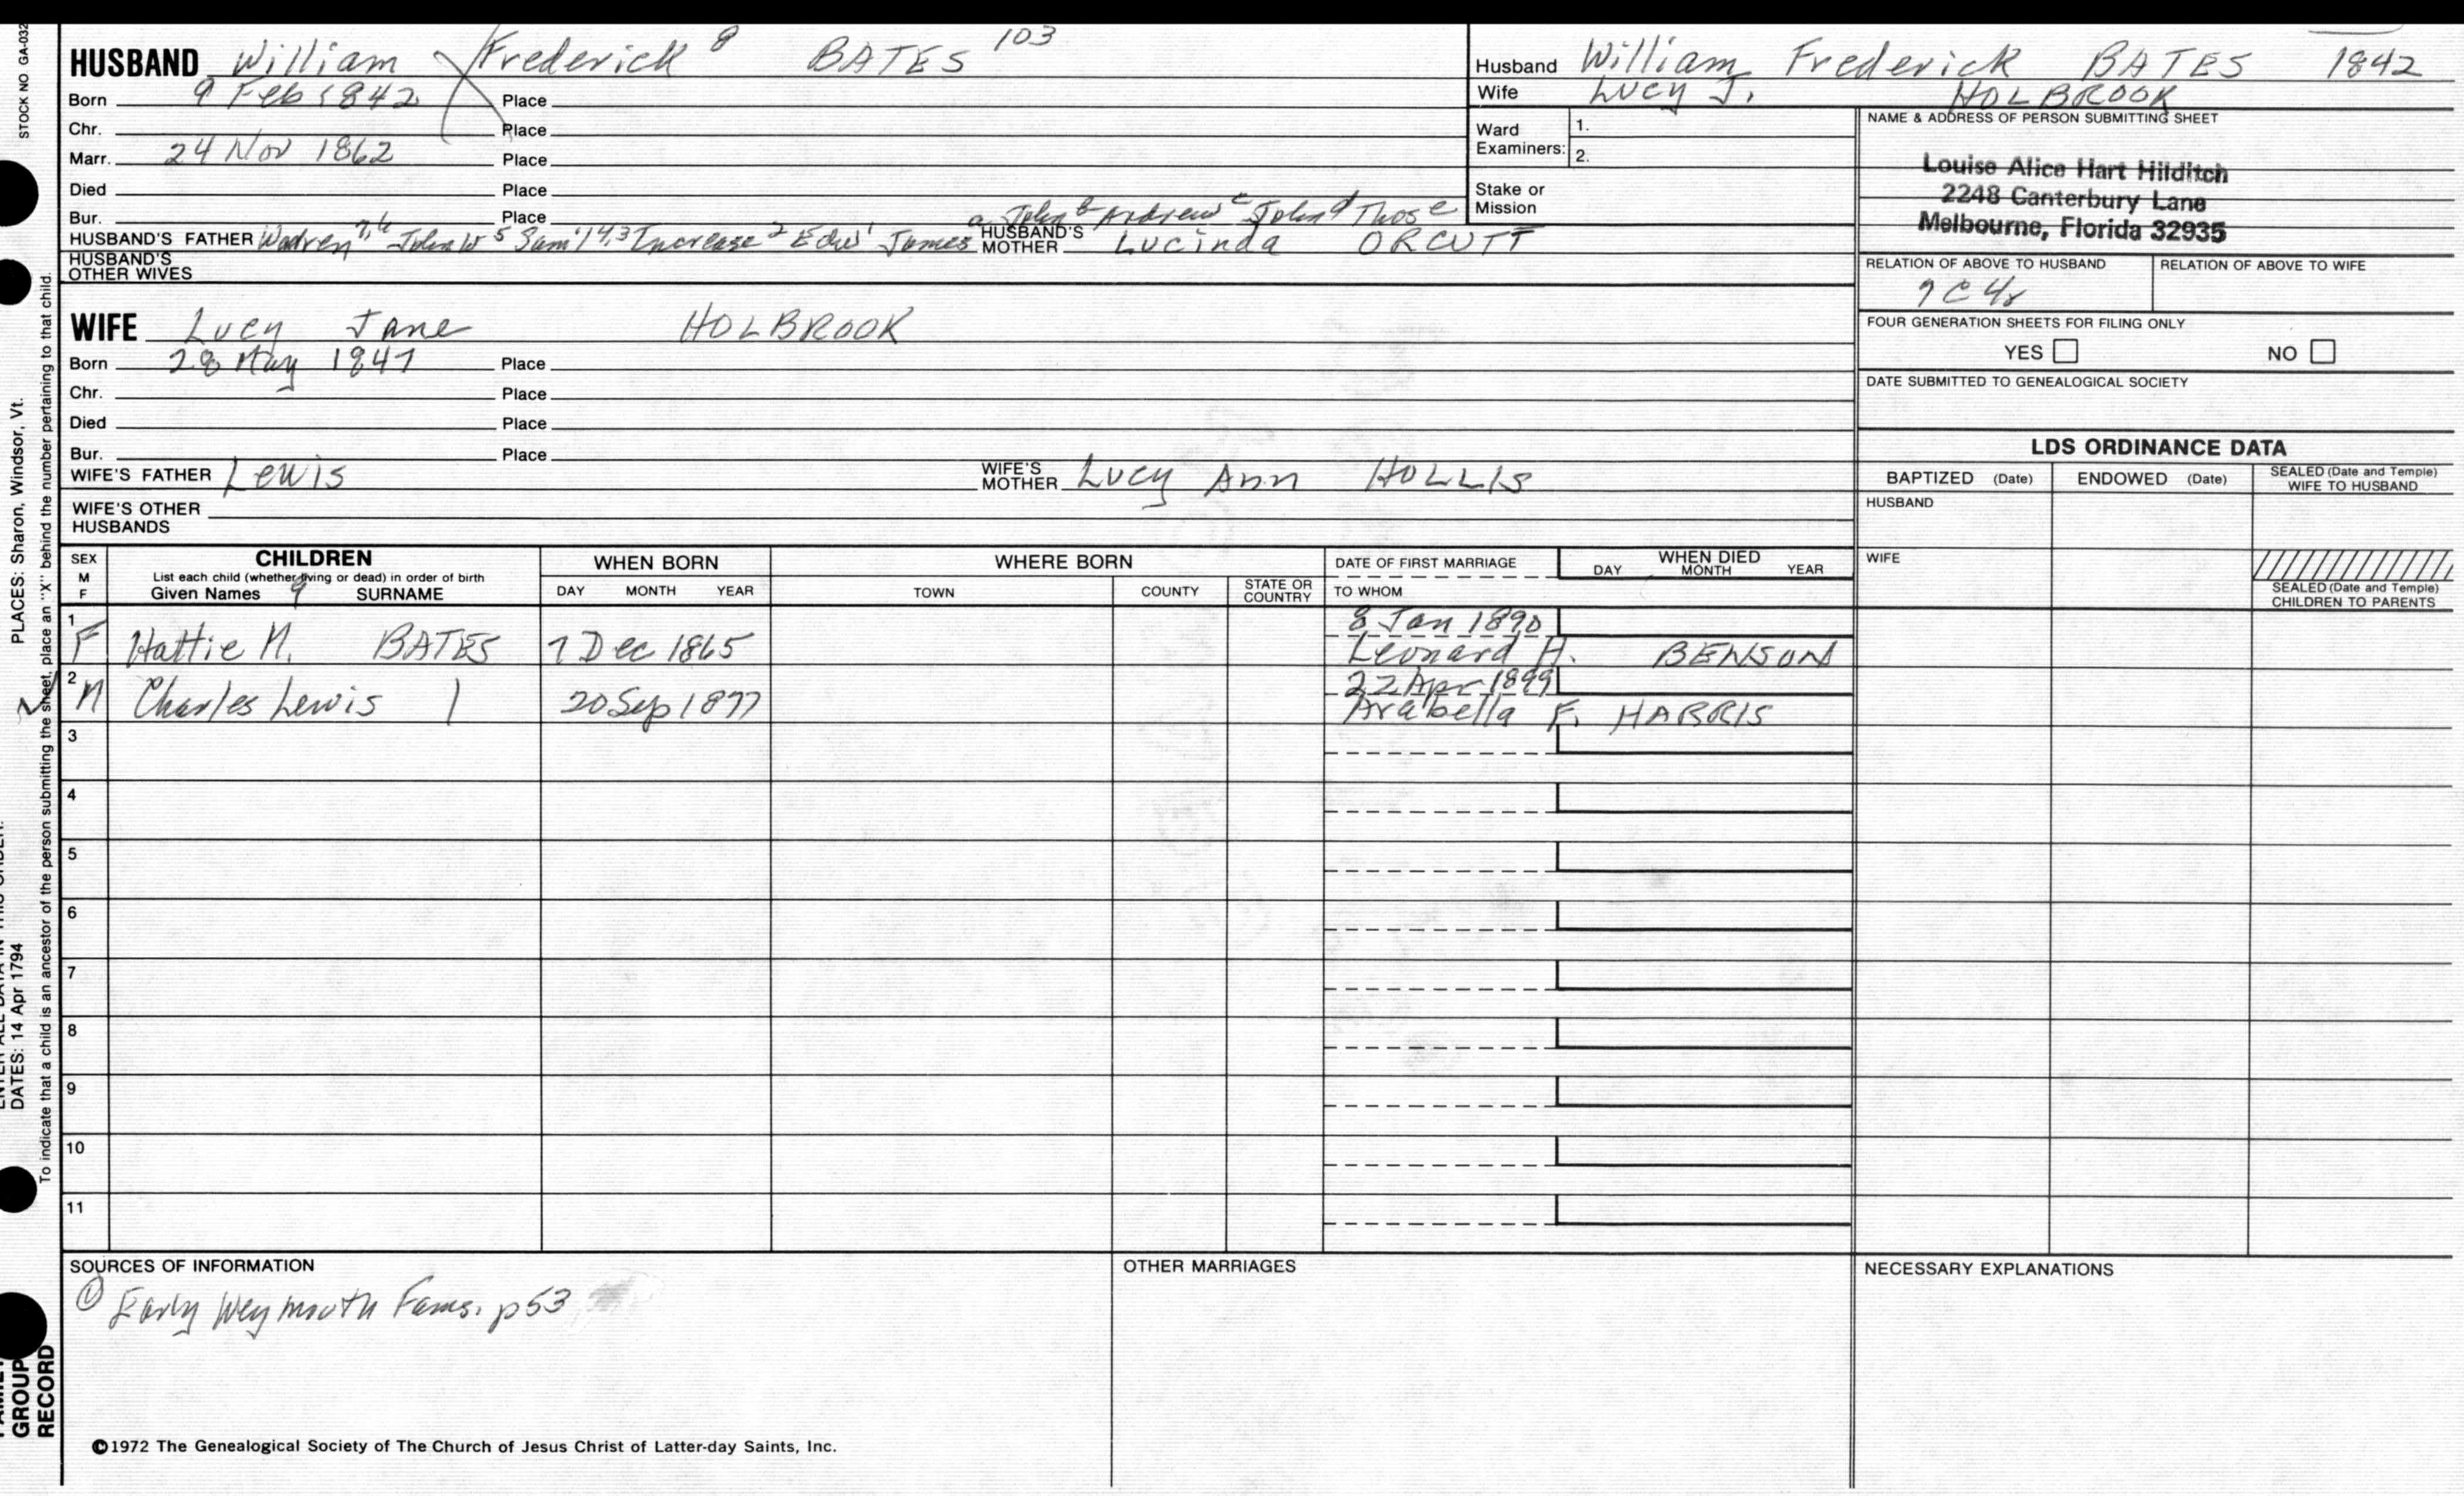 STOCK NO GA-032
HUSBAND William Frederick 8 BATES 103
Born 9 Feb 1842 Place
Chr. Place
Marr. 24 Nov 1862 Place
Died Place
Bur. Place
a John b Andrew c John d Thos e
HUSBAND'S FATHER Warren 7,6 John W 5 Sam'l 4,3 Increase 2 Edw' James HUSBAND'S MOTHER Lucinda ORCUTT
HUSBAND'S OTHER WIVES
Husband William Frederick BATES 1842
Wife Lucy J. HOLBROOK
Ward Examiners: 1.
2.
Stake or Mission
NAME & ADDRESS OF PERSON SUBMITTING SHEET
Louise Alice Hart Hilditch
2248 Canterbury Lane
Melbourne, Florida 32935
RELATION OF ABOVE TO HUSBAND RELATION OF ABOVE TO WIFE
FOUR GENERATION SHEETS FOR FILING ONLY
YES NO
DATE SUBMITTED TO GENEALOGICAL SOCIETY
WIFE Lucy Jane HOLBROOK
Born 28 May 1847 Place
Chr. Place
Died Place
Bur. Place
WIFE'S FATHER Lewis WIFE'S MOTHER Lucy Ann HOLLIS
WIFE'S OTHER HUSBANDS
LDS ORDINANCE DATA
BAPTIZED (Date) ENDOWED (Date) SEALED (Date and Temple) WIFE TO HUSBAND
HUSBAND
WIFE
SEALED (Date and Temple) CHILDREN TO PARENTS
SEX M F
CHILDREN
List each child (whether living or dead) in order of birth
Given Names 9 SURNAME
WHEN BORN
DAY MONTH YEAR
WHERE BORN
TOWN COUNTY STATE OR COUNTRY
DATE OF FIRST MARRIAGE
TO WHOM
WHEN DIED
DAY MONTH YEAR
1 8 Jan 1890
F Hattie M. BATES 7 Dec 1865 Leonard A. BENSON
2 22 Apr 1899
M Charles Lewis | 20 Sep 1877 Arabella F. HARRIS
3
4
5
6
7
8
9
10
11
SOURCES OF INFORMATION
① Early Weymouth Fams. p53
OTHER MARRIAGES
NECESSARY EXPLANATIONS
©1972 The Genealogical Society of The Church of Jesus Christ of Latter-day Saints, Inc.
PLACES: Sharon, Windsor, Vt.
DATES: 14 Apr 1794
To indicate that a child is an ancestor of the person submitting the sheet, place an "X" behind the number pertaining to that child.
GROUP
RECORD